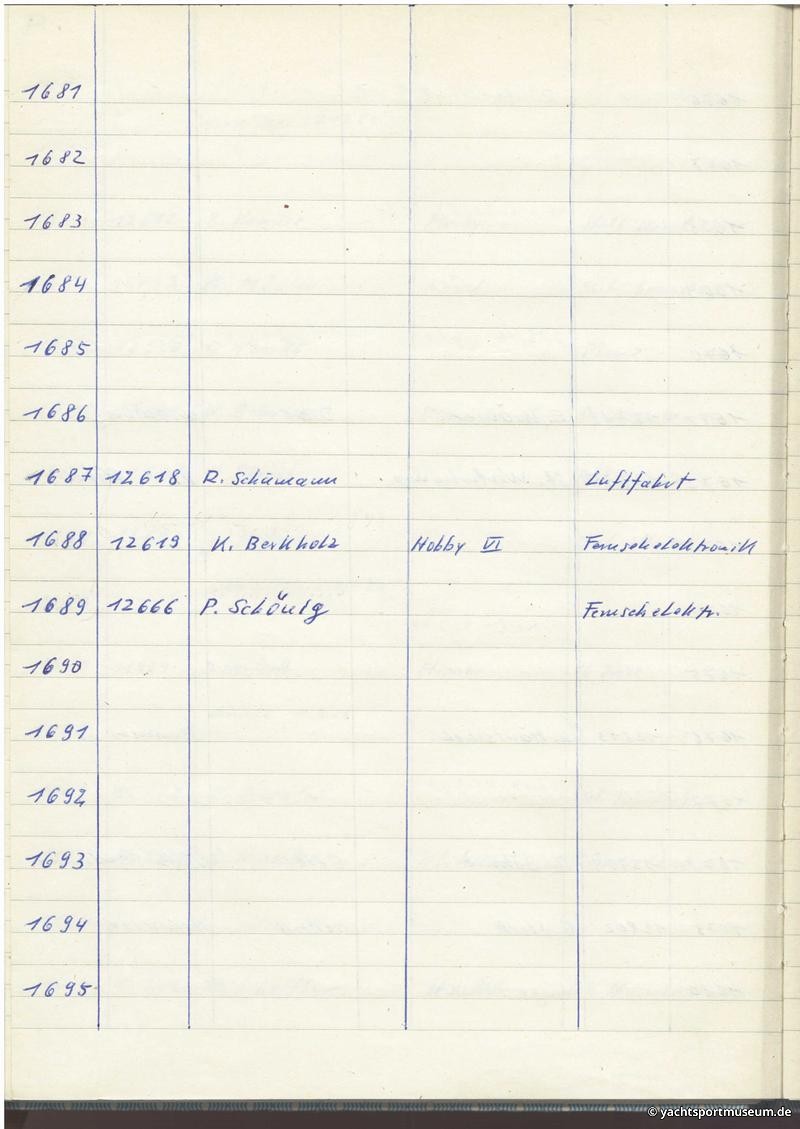 1681
1682
1683
1684
1685
1686
1687 12618 R. Schümann Luftfahrt
1688 12619 K. Berkholz Hobby VI Fernsehelektronik
1689 12666 P. Schönig Fernsehelektr.
1690
1691
1692
1693
1694
1695
© yachtsportmuseum.de